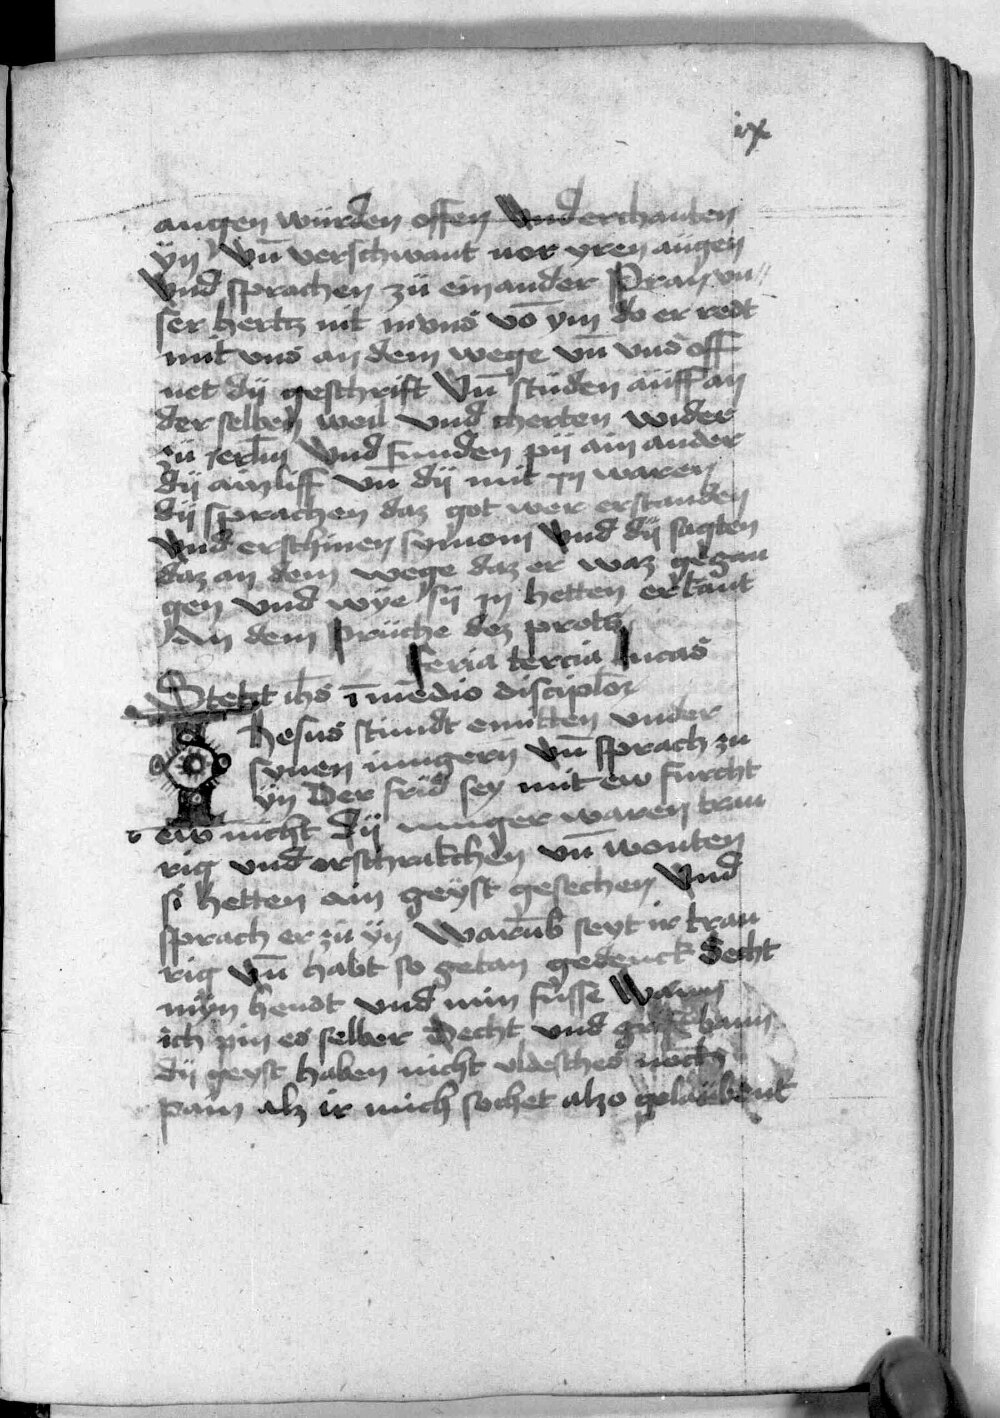 ix
augen würden offen Vnd erchanten
yn Vn̄ verschwant vor yren augen
Vnd sprachen zü einander Pran vn//
ser hertz nit in vns vō ym do er redt
mit vns an dem wege vn̄ vnd off
net dij geschrift Vn̄ stüden auff an
der selben weil vnd cherten wider
zü jerlm̄ Vnd funden pij ain ander
dij ainliff vn̄ dij mit jn waren
dij sprachen daz got wer erstanden
Vnd erschinen symom Vnd dij sagten
daz an dem wege daz er waz gegan
gen vnd wye sij jn hetten erkant
An dem prüche dez protz
Feria tercia lucas
Stetit ih̄s ī medio disciplor̄
Ihesus stundt emitten vnder
synen iungern vn̄ sprach zu
yn Der frid sey mit ew furcht
ew nicht Dij iunger waren trau
rig vnd erschrakchen vn̄ wonten
si hetten ain geyst gesechen Vnd
sprach er zü yn Warūb seyt ir trau
rig vn̄ habt so getan gedenck Secht
myn hendt vnd min füsse Wann
ich pin es selber Secht vnd
dij geyst haben nicht vleisches noch
pain alz ir mich sechet alzo gelaubent